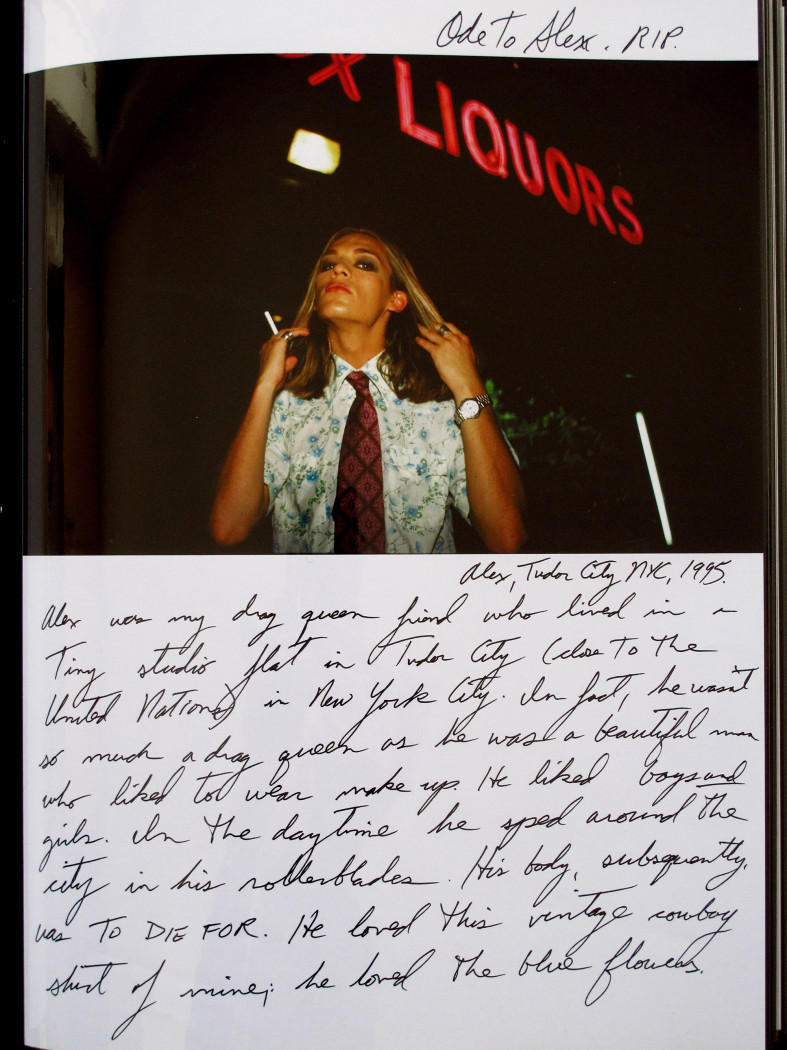 Ode To Alex. RIP.
X LIQUORS
Alex, Tudor City NYC, 1995.
Alex was my drag queen friend who lived in a
Tiny studio flat in Tudor City (close To The
United Nations) in New York City. In fact, he wasn't
so much a drag queen as he was a beautiful man
who liked to wear make up. He liked boys and
girls. In The daytime he sped around The
city in his rollerblades. His body, subsequently,
was TO DIE FOR. He loved This vintage cowboy
shirt of mine; he loved The blue flowers.